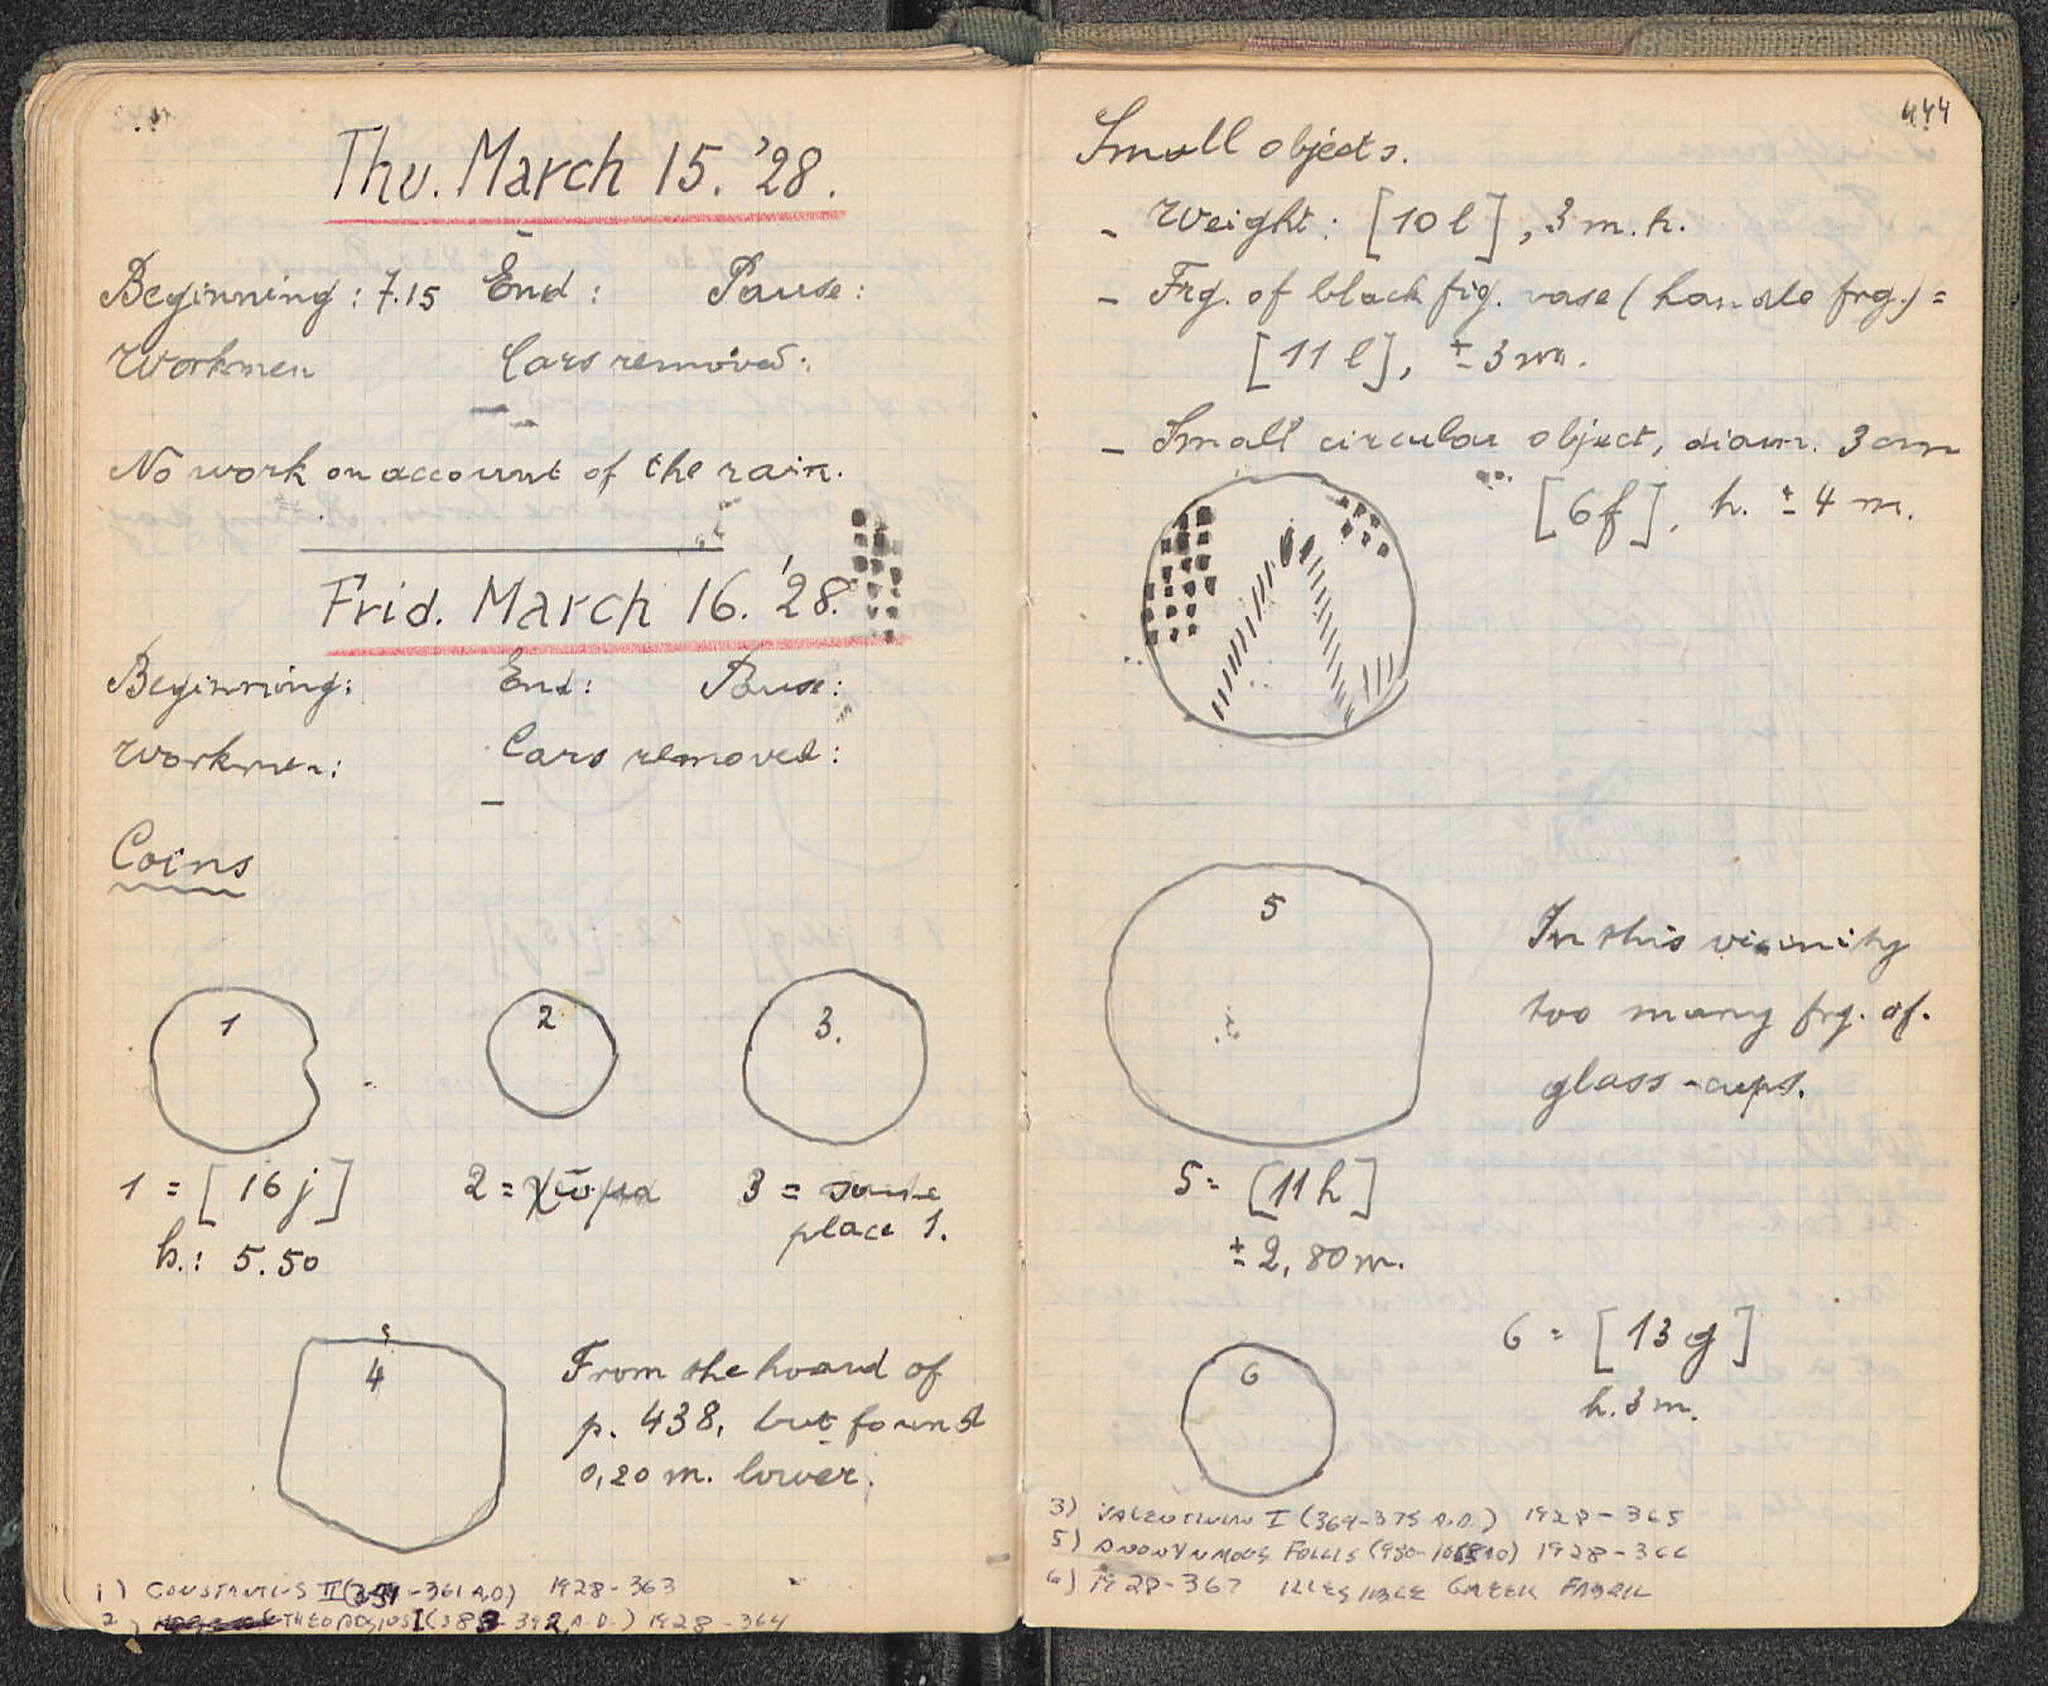 Thu. March 15. '28.
Beginning: 7.15 End: Pause:
Workmen Cars removed:
No work on account of the rain.
Frid. March 16. '28.
Beginning: End: Pause:
Workmen: Cars removed:
Coins
1
2
3.
1 = [16 j]
h.: 5.50
2 = χῶμα
3 = same
place 1.
4
From the hoard of
p. 438, but found
0,20 m. lower.
1) CONSTANTIUS II ( -361 A.D) 1928-363
2) THEODOSIUS I (383-392 A.D.) 1928-364
444
Small objects.
- Weight: [10 l], 3 m. h.
- Frg. of black fig. vase (handle frg.) =
[11 l], ± 3 m.
- Small circular object, diam. 3 cm
[6f], h. ± 4 m.
5
In this vicinity
too many frg. of
glass-cups.
5 = [11 h]
± 2,80 m.
6
6 = [13 g]
h. 3 m.
3) VALENTINIAN I (364-375 A.D.) 1928-365
5) ANONYMOUS FOLLIS 1928-366
6) 1928-367 ILLEGIBLE GREEK FABRIC